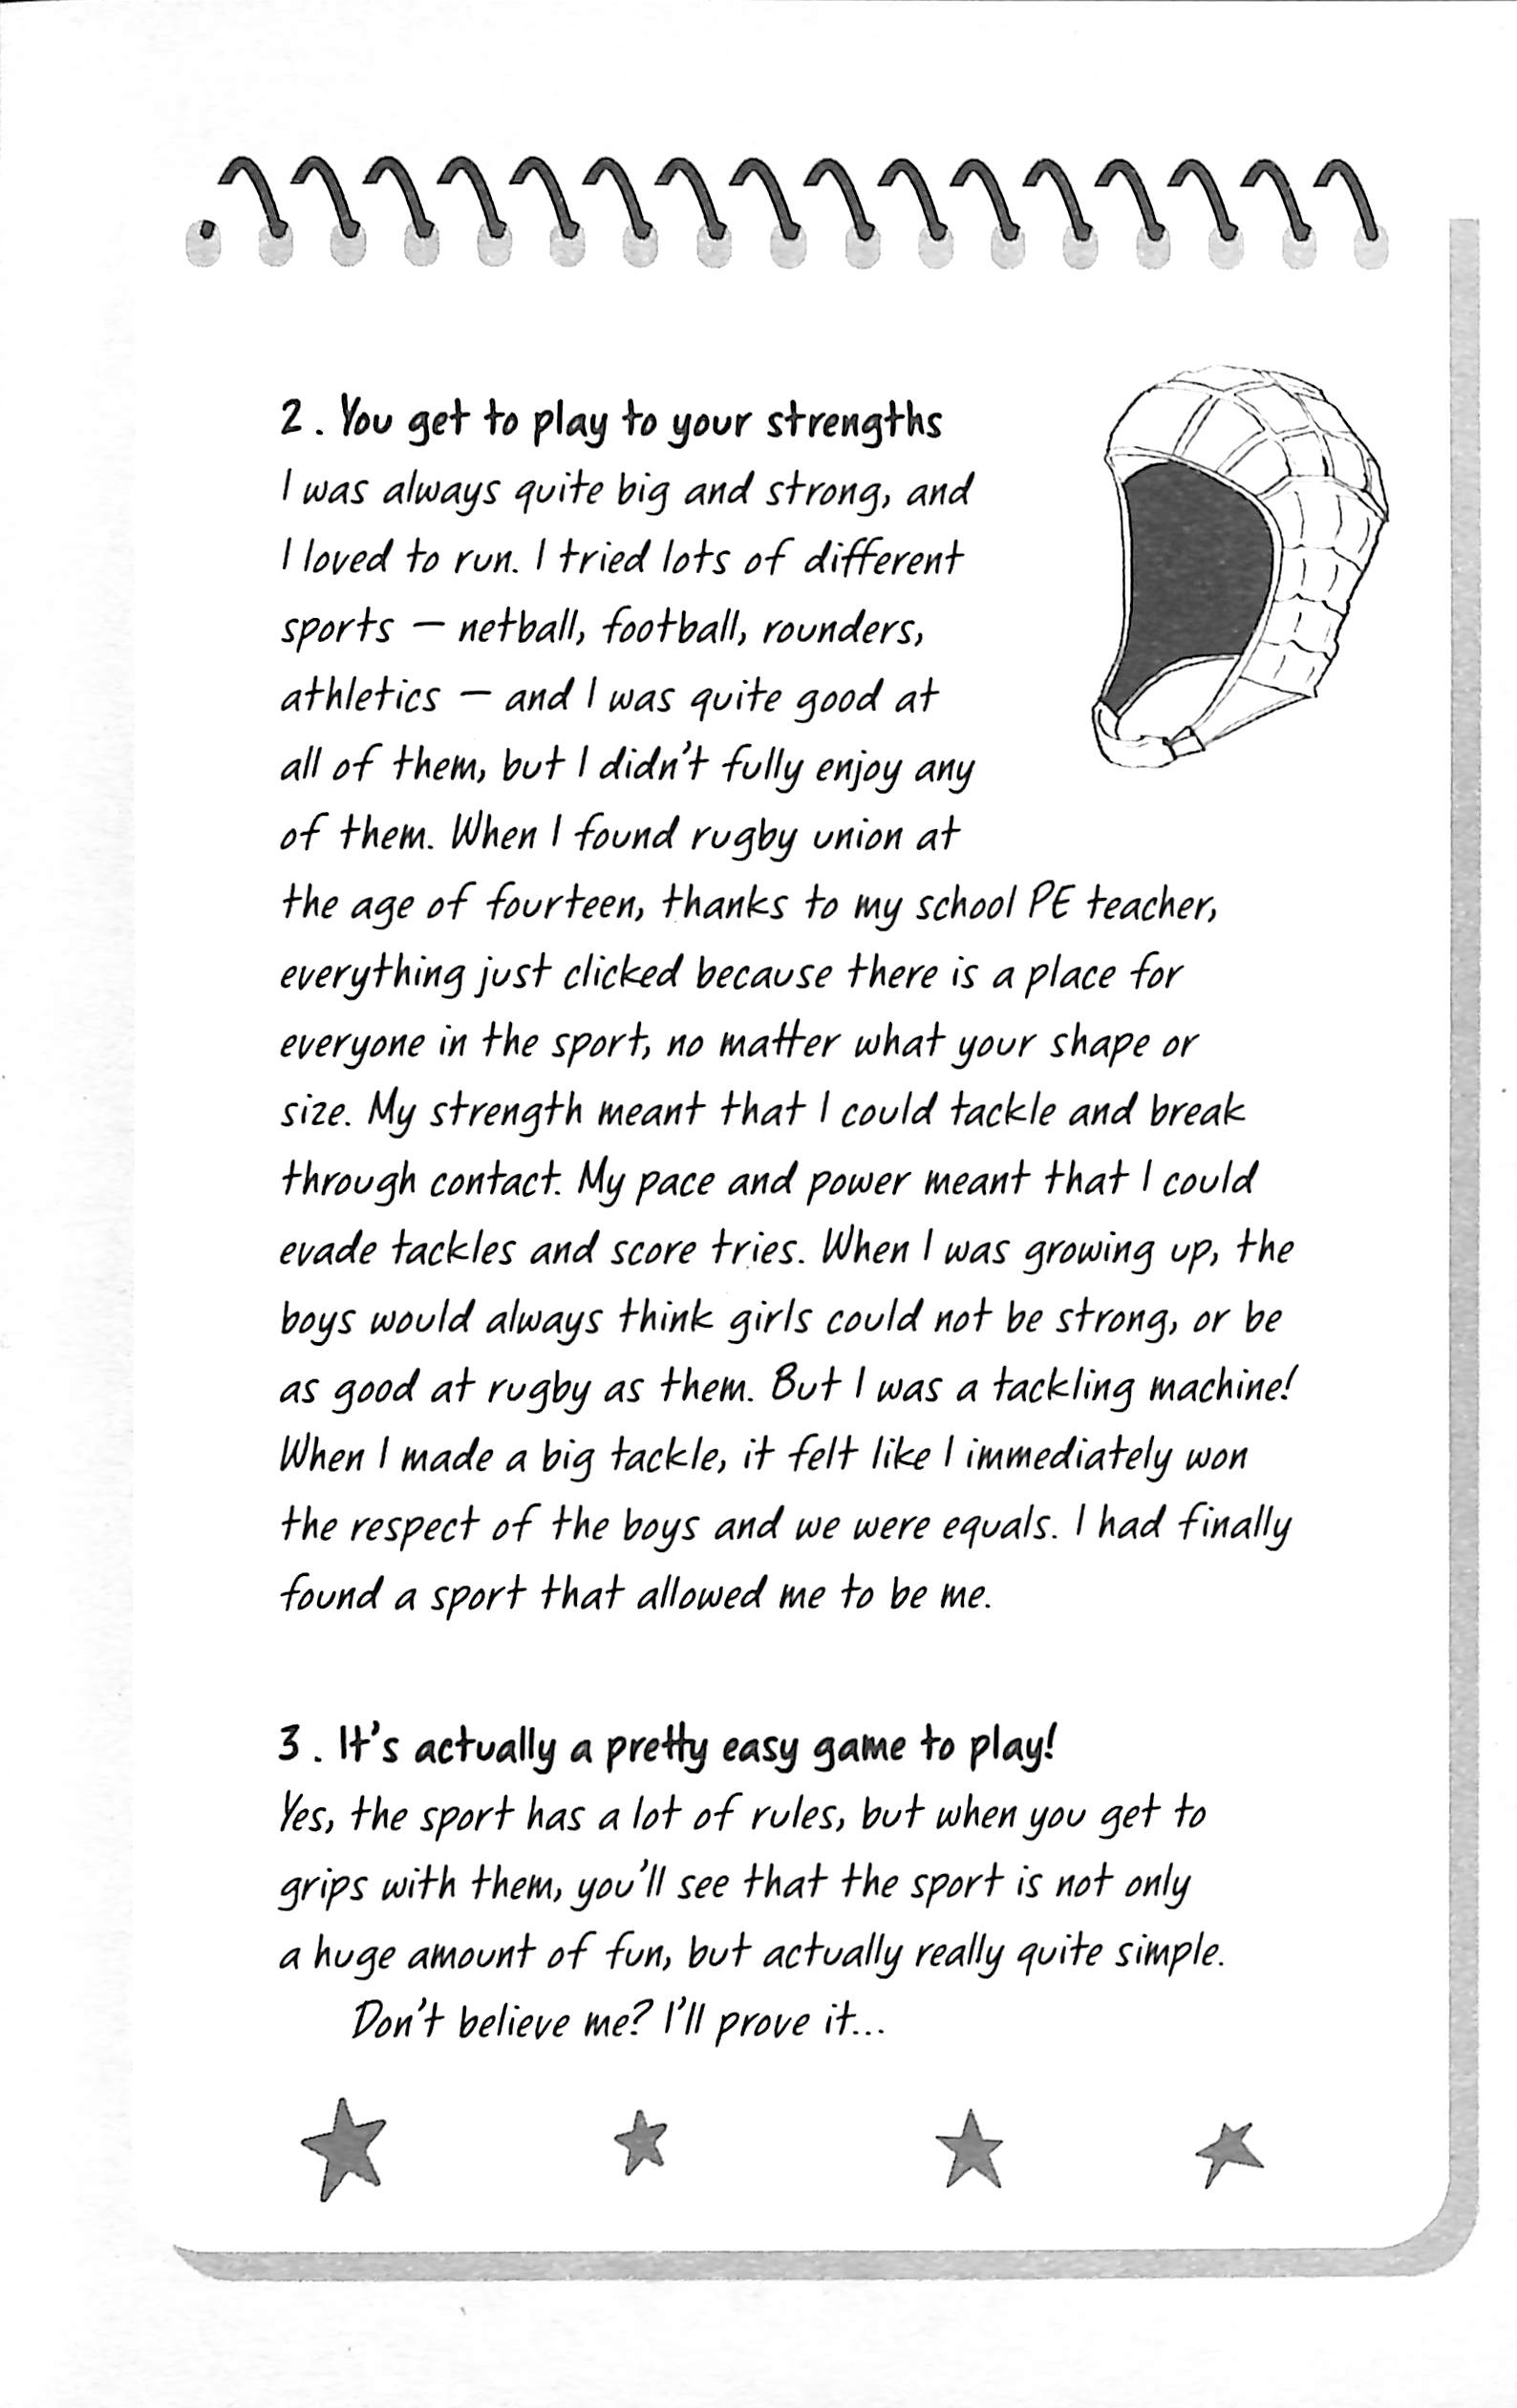 2. You get to play to your strengths
I was always quite big and strong, and
I loved to run. I tried lots of different
sports – netball, football, rounders,
athletics – and I was quite good at
all of them, but I didn't fully enjoy any
of them. When I found rugby union at
the age of fourteen, thanks to my school PE teacher,
everything just clicked because there is a place for
everyone in the sport, no matter what your shape or
size. My strength meant that I could tackle and break
through contact. My pace and power meant that I could
evade tackles and score tries. When I was growing up, the
boys would always think girls could not be strong, or be
as good at rugby as them. But I was a tackling machine!
When I made a big tackle, it felt like I immediately won
the respect of the boys and we were equals. I had finally
found a sport that allowed me to be me.
3. It's actually a pretty easy game to play!
Yes, the sport has a lot of rules, but when you get to
grips with them, you'll see that the sport is not only
a huge amount of fun, but actually really quite simple.
Don't believe me? I'll prove it...